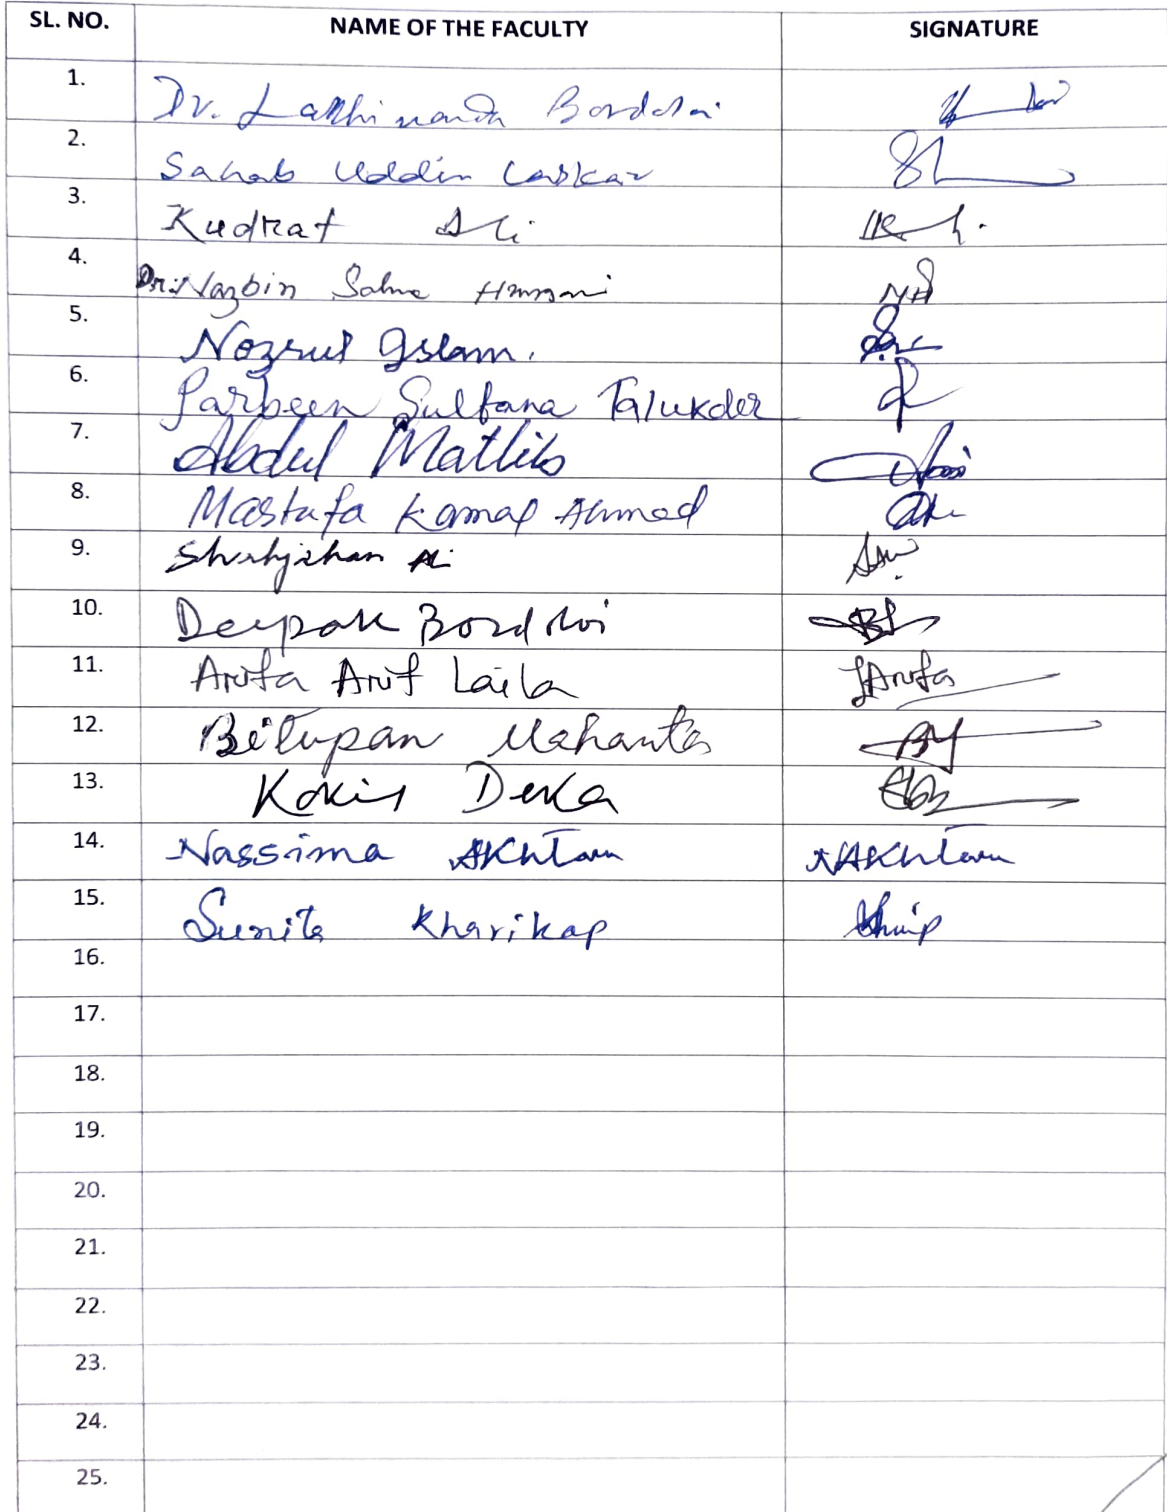 SL. NO. NAME OF THE FACULTY SIGNATURE
1. Dr. Lakhinanda Bordoloi
2. Sahab Uddin Laskar
3. Kudrat Ali
4. Dr. Nazbin Salma
5. Nozrul Islam.
6. Parbeen Sultana Talukder
7. Abdul Matlib
8. Mastafa Kamal Ahmed
9. Shahjahan Ali
10. Deepak Bordoloi
11. Arifa Arif Laila Arifa
12. Bitupan Mahanta
13. Deka
14. Nassima Akhtara NAkhtara
15. Sunita Kharikap
16.
17.
18.
19.
20.
21.
22.
23.
24.
25.